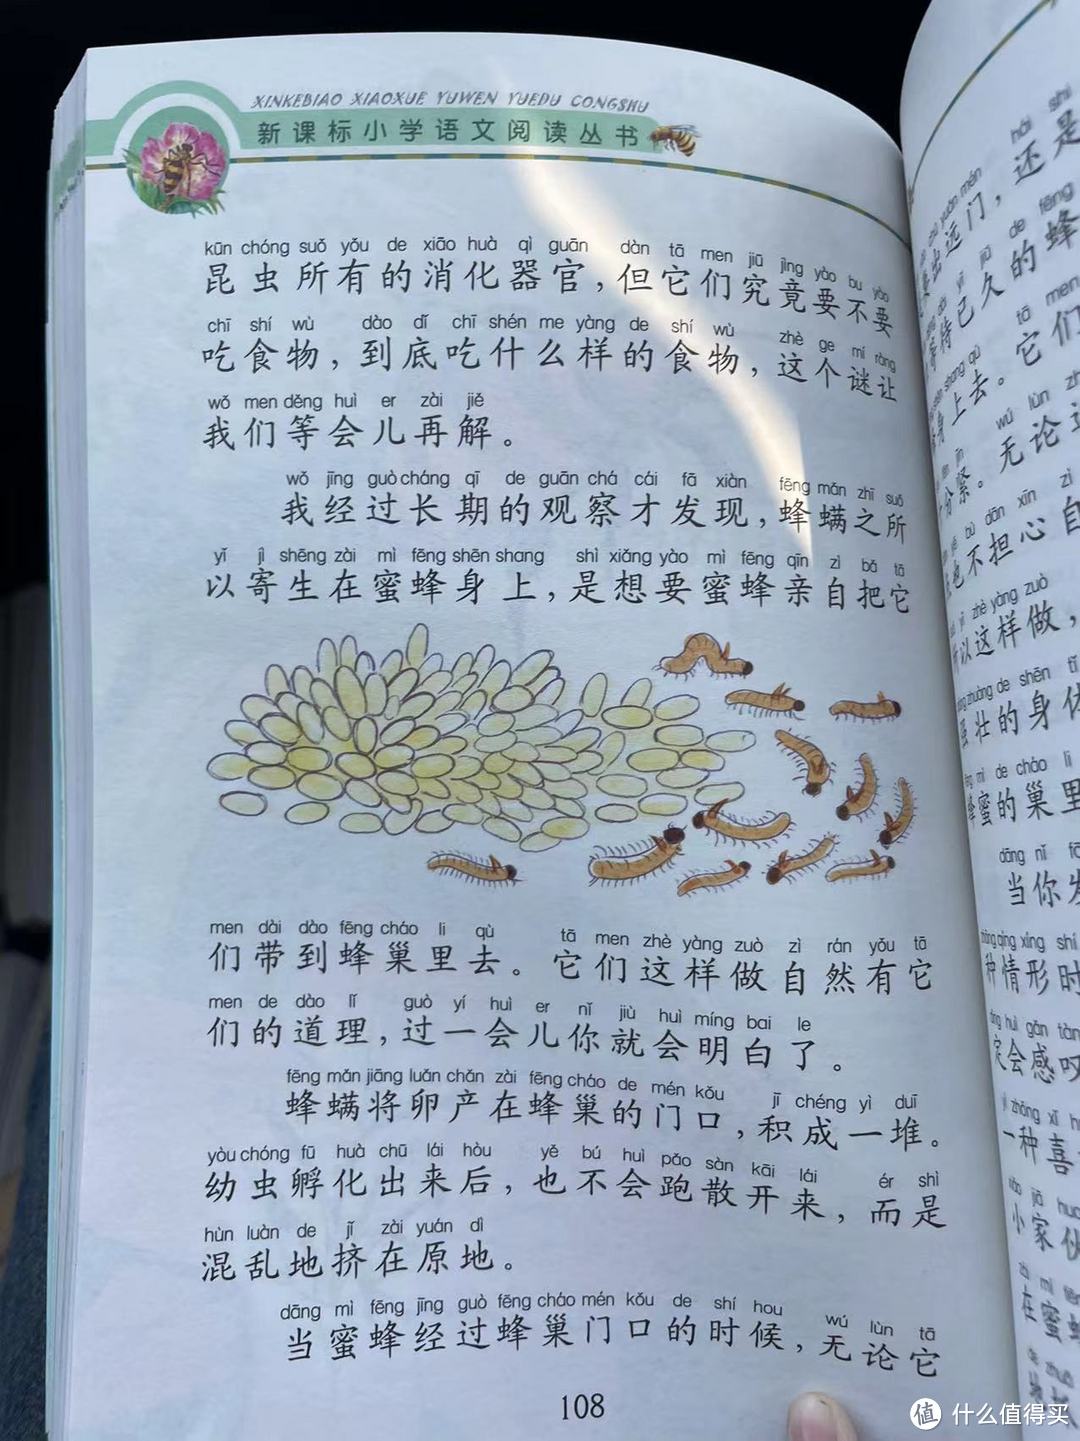 XINKEBIAO XIAOXUE YUWEN YUEDU CONGSHU
新课标小学语文阅读丛书
kūn chóng suǒ yǒu de xiāo huà qì guān dàn tā men jiū jìng yào bu yào
昆虫所有的消化器官，但它们究竟要不要
chī shí wù dào dǐ chī shén me yàng de shí wù zhè ge mí ràng
吃食物，到底吃什么样的食物，这个谜让
wǒ men děng huì er zài jiě
我们等会儿再解。
wǒ jīng guò cháng qī de guān chá cái fā xiàn fēng mǎn zhī suǒ
我经过长期的观察才发现，蜂螨之所
yǐ jì shēng zài mì fēng shēn shang shì xiǎng yào mì fēng qīn zì bǎ tā
以寄生在蜜蜂身上，是想要蜜蜂亲自把它
men dài dào fēng cháo li qù tā men zhè yàng zuò zì rán yǒu tā
们带到蜂巢里去。它们这样做自然有它
men de dào lǐ guò yí huì er nǐ jiù huì míng bai le
们的道理，过一会儿你就会明白了。
fēng mǎn jiāng luǎn chǎn zài fēng cháo de mén kǒu jī chéng yì duī
蜂螨将卵产在蜂巢的门口，积成一堆。
yòu chóng fū huà chū lái hòu yě bú huì pǎo sàn kāi lái ér shì
幼虫孵化出来后，也不会跑散开来，而是
hùn luàn de jǐ zài yuán dì
混乱地挤在原地。
dāng mì fēng jīng guò fēng cháo mén kǒu de shí hou wú lùn tā
当蜜蜂经过蜂巢门口的时候，无论它
108
hái shi
出远门，还是
等待已久的蜂
身上去。它们
wú lùn
紧。无论
不担心自
所以这样做，
强壮的身体
蜂蜜的巢里
dāng nǐ
当你发
种情形时
定会感叹
一种喜
小家伙
在蜜蜂
值 什么值得买